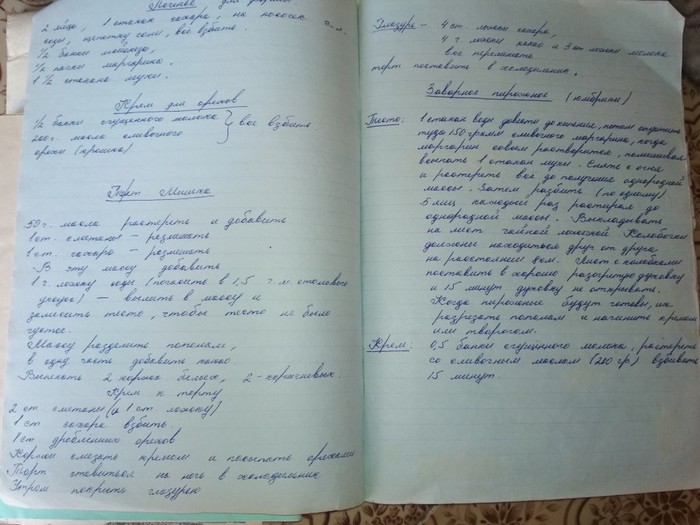 Печенье для
2 яйца, 1 стакан сахара, на кончике
соды, щепотку соли, всё взбить.
1/2 банки майонеза,
1/2 пачки маргарина.
1 1/2 стакана муки.
Крем для орехов
1/2 банки сгущенного молока
200 г. масла сливочного } все взбить.
орехи (крошка)
Торт Мишка
50 г. масла растереть и добавить
1 ст. сметаны — размешать
1 ст. сахара — размешать
В эту массу добавить
1 г. ложку соды (погасить в 1,5 г. л столового
уксуса) — вылить в массу и
замесить тесто, чтобы тесто не было
густое.
Массу разделить пополам,
в одну часть добавить какао
Выпекать 2 коржа белых, 2 - коричневых.
Крем к торту
2 ст сметаны (и 1 ст. ложку)
1 ст сахара взбить
1 ст дробленных орехов
Коржи смазать кремом и посыпать орехами
Торт ставиться на ночь в холодильник
Утром покрыть глазурью
Глазурь — 4 ст. ложки сахара,
4 г. ложки какао и 3 ст ложки молока
все перемешать
торт поставить в холодильник.
Заварное пирожное (юмбрики)
Тесто: 1 стакан воды довести до кипения, потом опустить
туда 150 грамм сливочного маргарина, когда
маргарин совсем растворится, помешивая
всыпать 1 стакан муки. Снять с огня
и растереть всё до получения однородной
массы. Затем разбить (по одному)
5 яиц каждый раз растирая до
однородной массы. Выкладывать
на лист чайной ложкой Колобочки
должны находиться друг от друга
на расстоянии 6см. Лист с колобками
поставить в хорошо разогретую духовку
и 15 минут духовку не открывать.
Когда пирожные будут готовы, их
разрезать пополам и начинить кремом
или творогом.
Крем: 0,5 банки сгущенного молока, растереть
со сливочным маслом (200 гр) взбивать
15 минут.